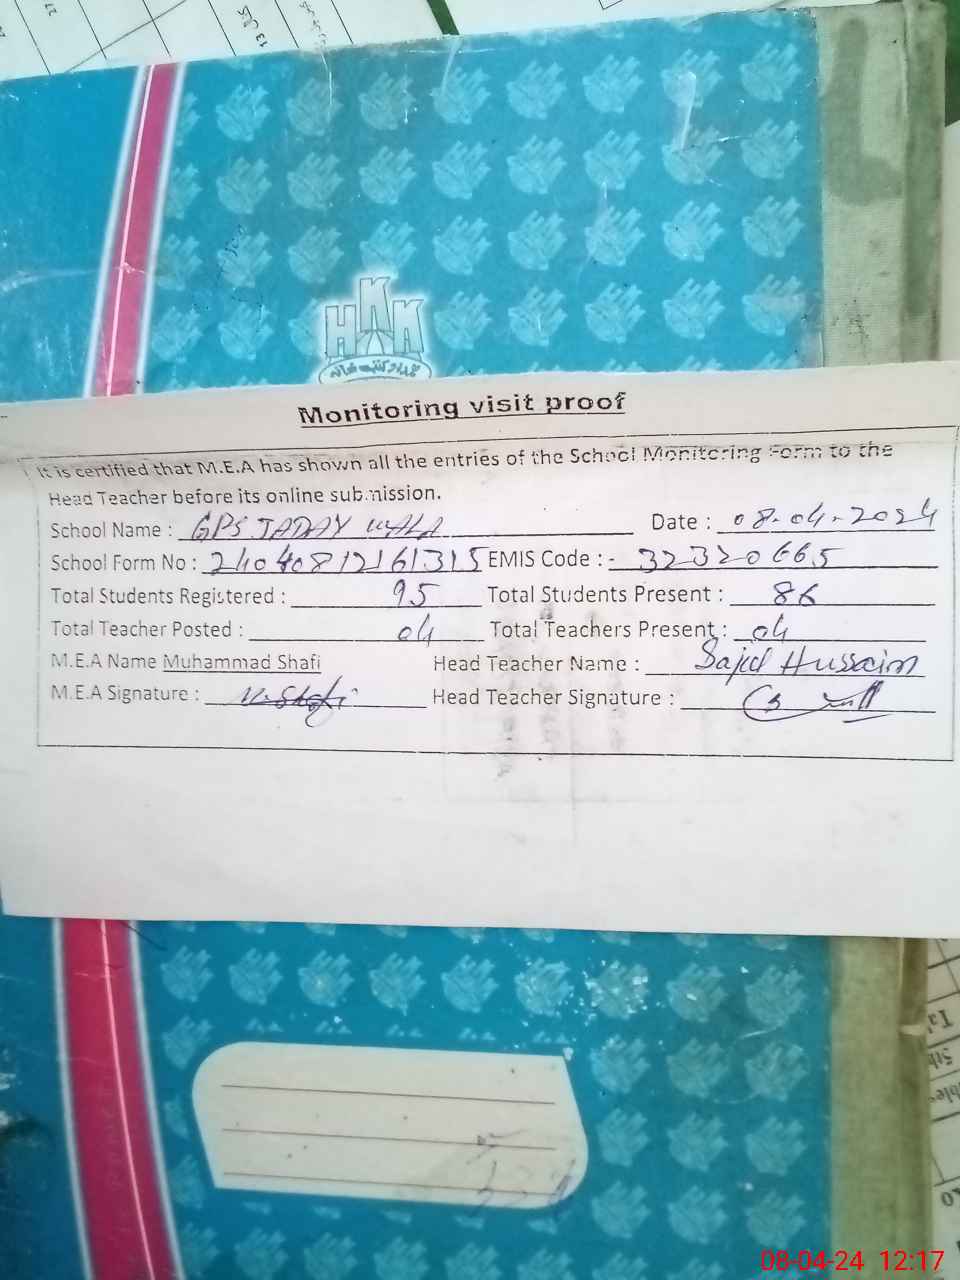 27
13
HKK
Monitoring visit proof
It is certified that M.E.A has shown all the entries of the School Monitoring Form to the
Head Teacher before its online submission.
School Name : GPS JADAY WALA Date : 08-04-2024
School Form No : 24040812161315 EMIS Code :- 32320665
Total Students Registered : 95 Total Students Present : 86
Total Teacher Posted : 04 Total Teachers Present : 04
M.E.A Name Muhammad Shafi Head Teacher Name : Sajid Hussain
M.E.A Signature : M. Shafi Head Teacher Signature :
08-04-24 12:17